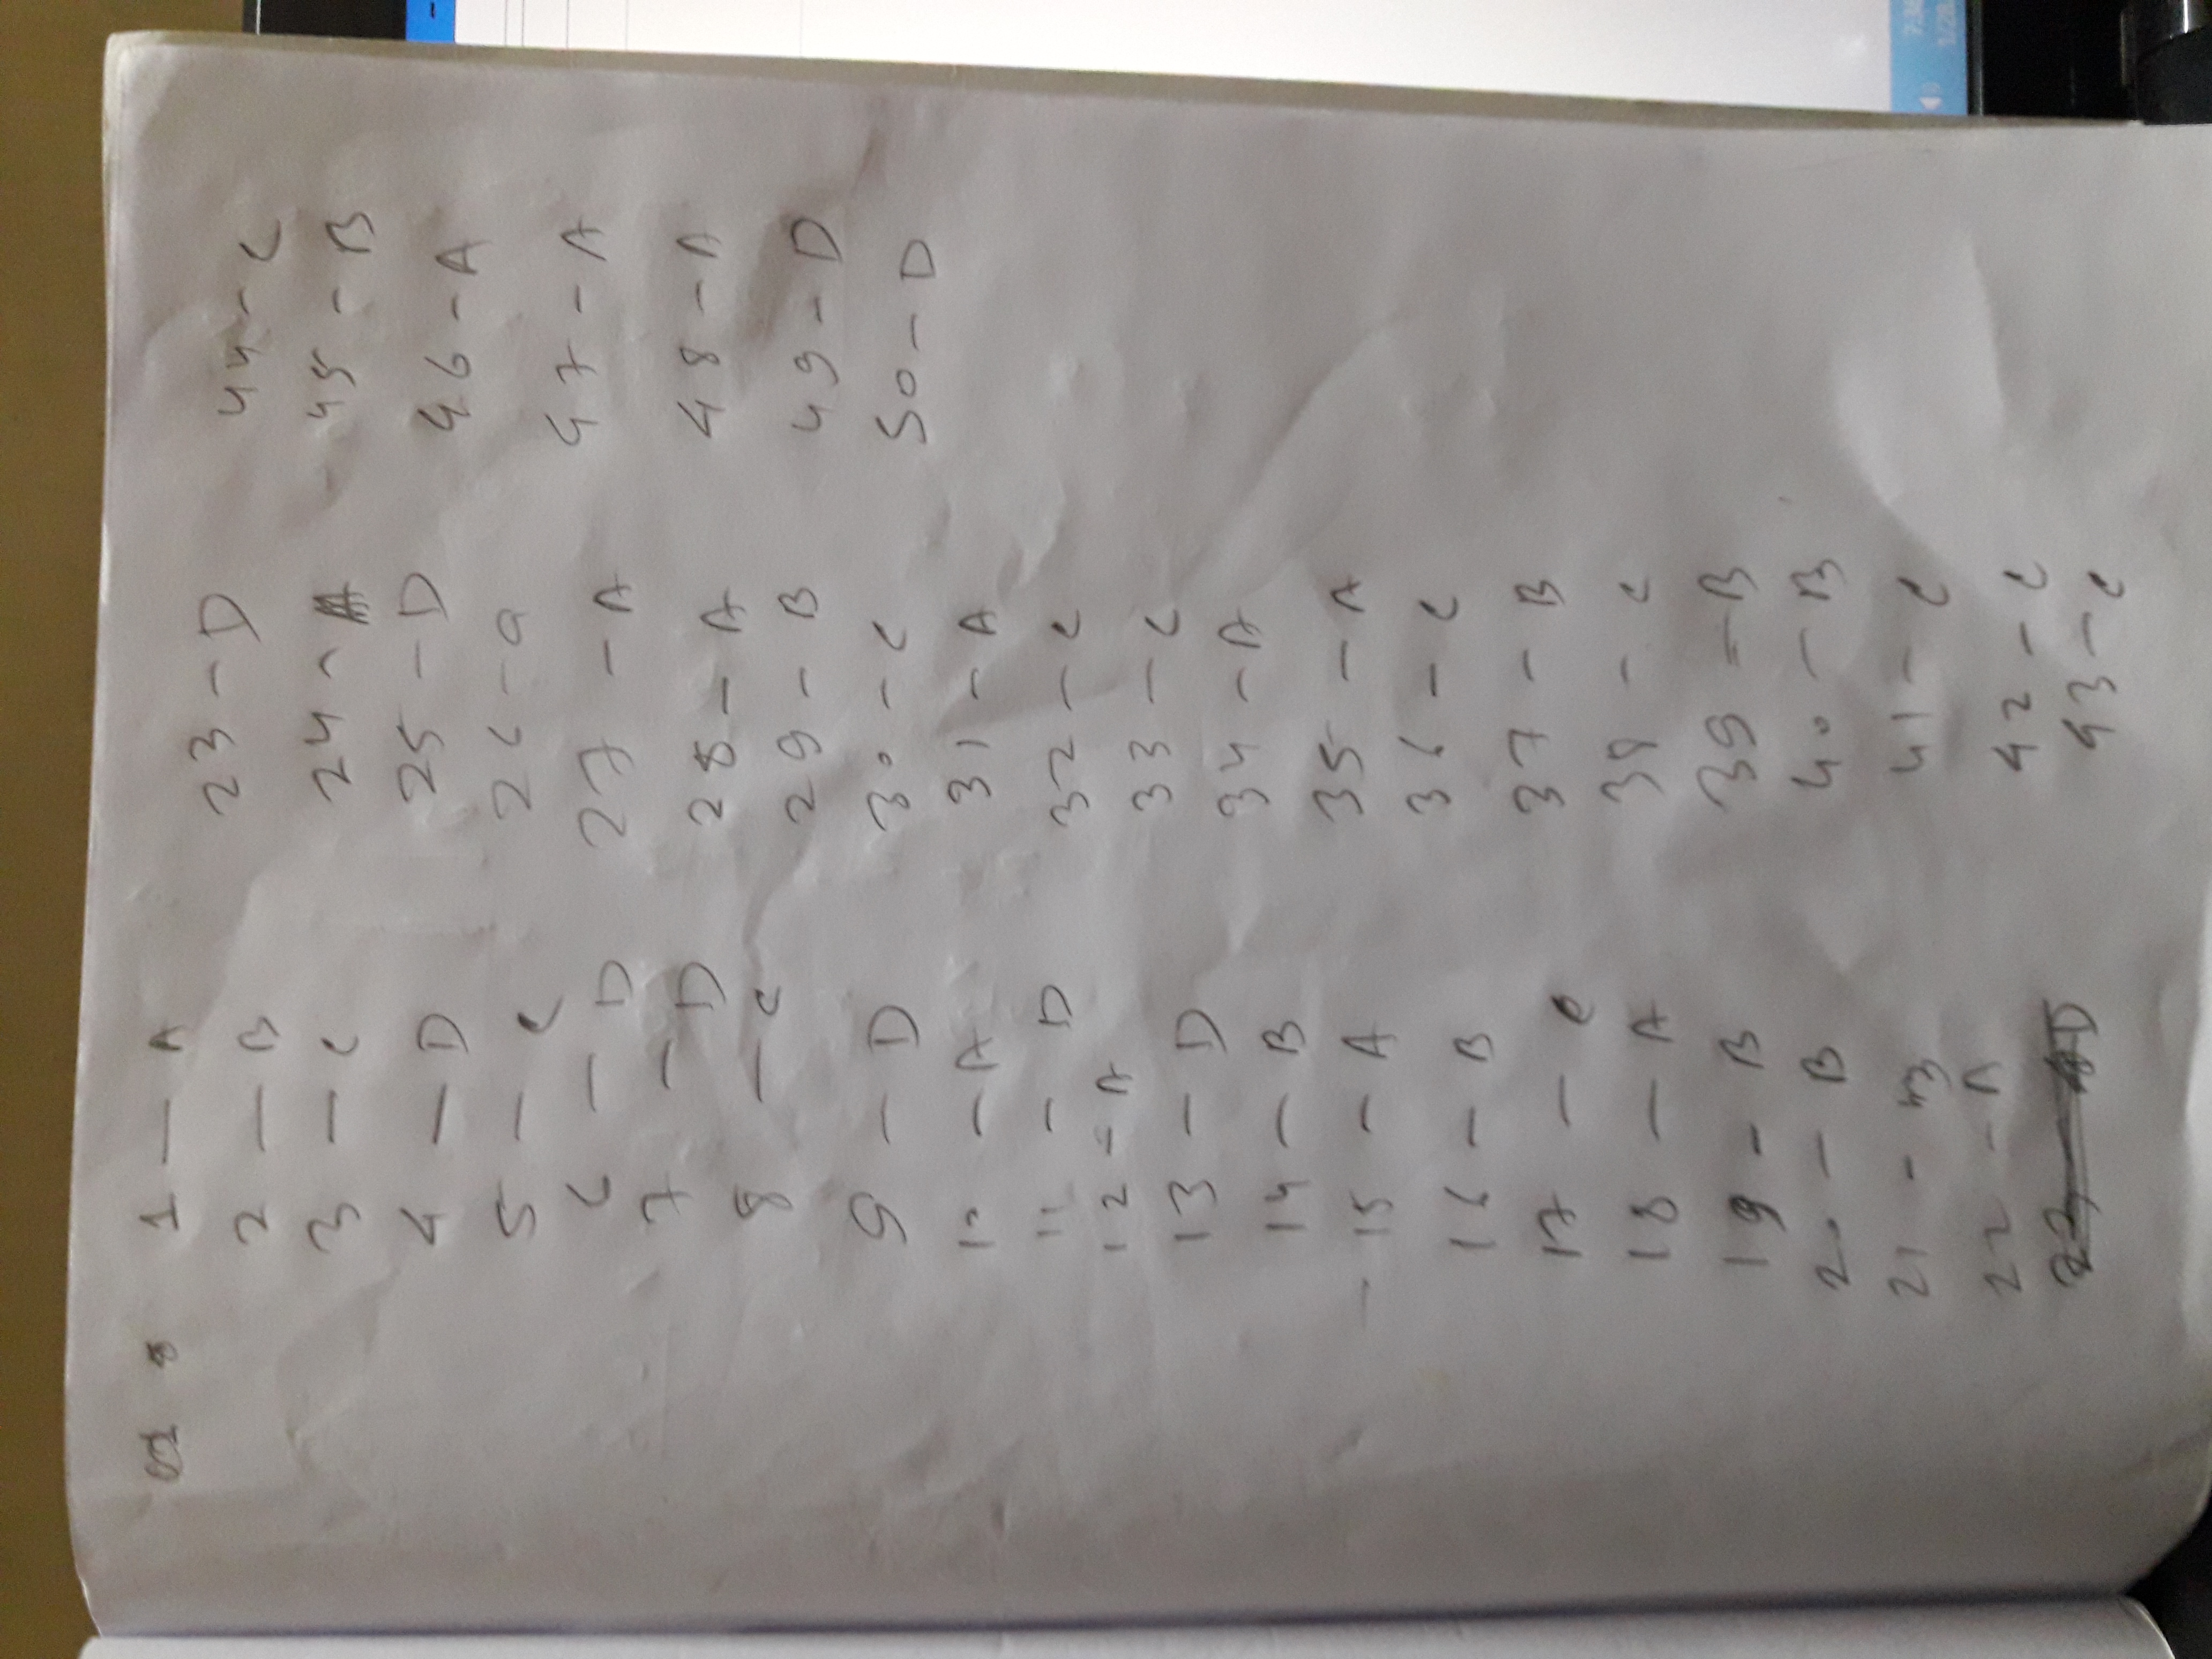 1 — A
2 — B
3 — C
4 — D
5 — C
6 — D
7 — D
8 — C
9 — D
10 — A
11 — D
12 — A
13 — D
14 — B
15 — A
16 — B
17 — C
18 — A
19 — B
20 — B
21 — B
22 — A
23 — D
23 — D
24 — A
25 — D
26 — a
27 — A
28 — A
29 — B
30 — C
31 — A
32 — C
33 — C
34 — A
35 — A
36 — C
37 — B
38 — C
39 — B
40 — B
41 — C
42 — C
43 — C
44 — C
45 — B
46 — A
47 — A
48 — A
49 — D
50 — D